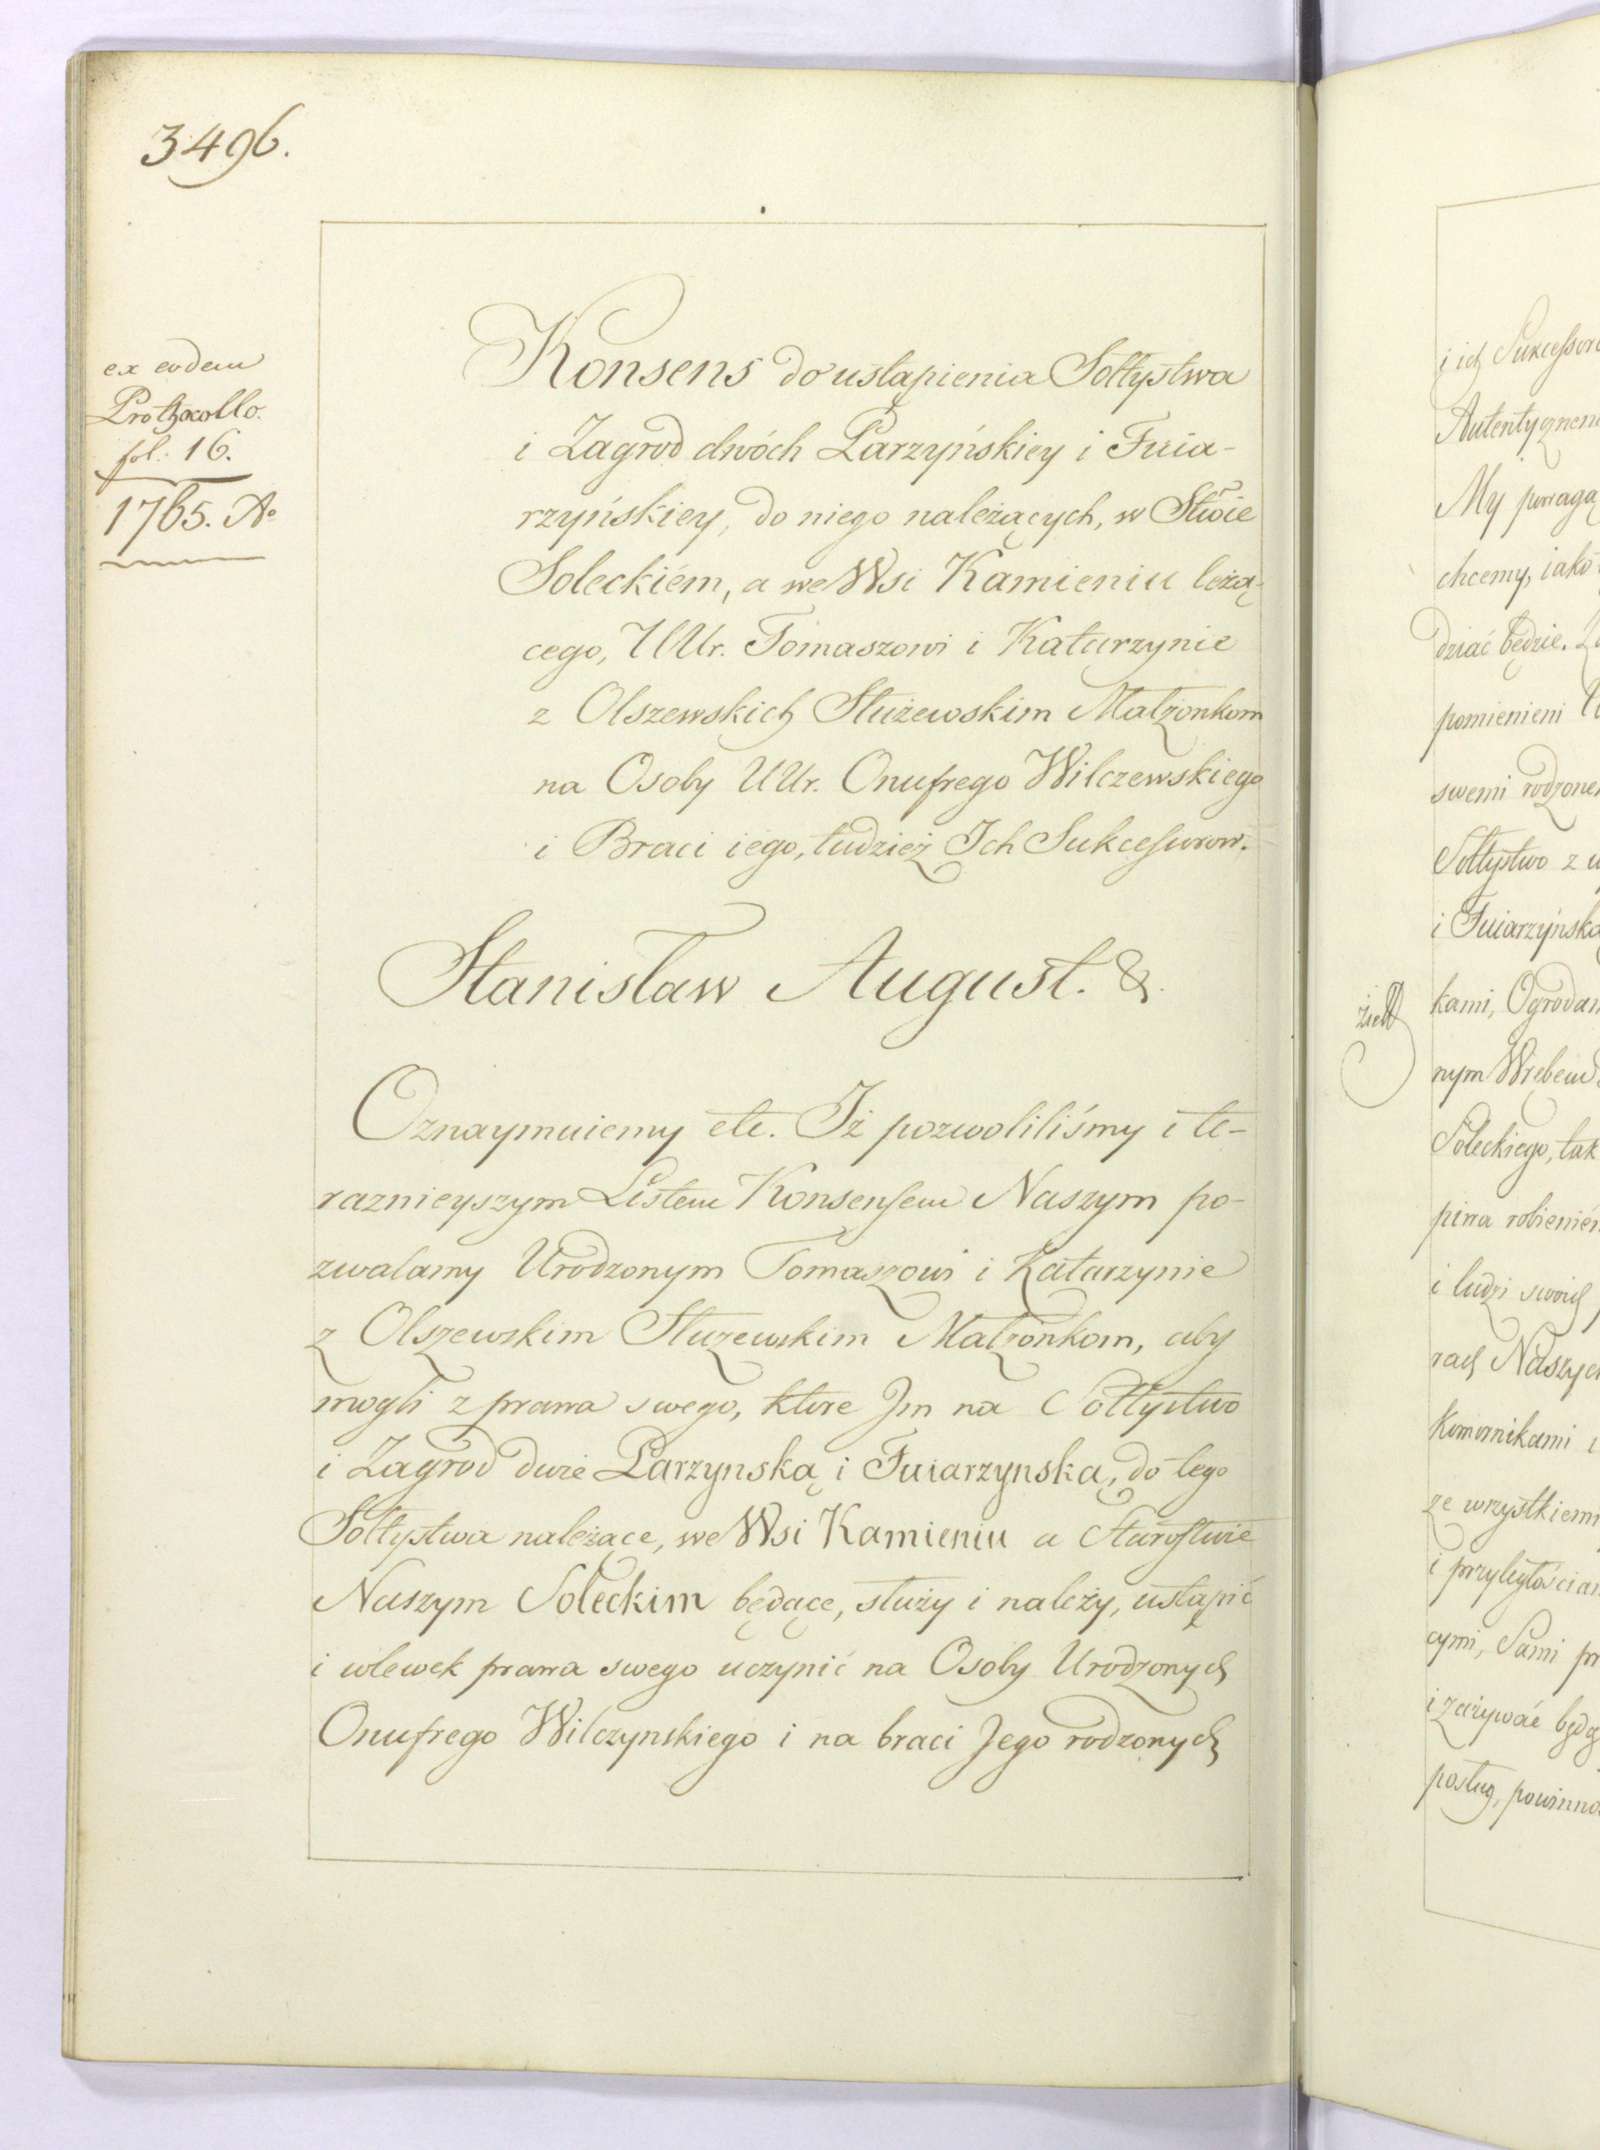 3496.
ex eodem
Prothocollo.
fol. 16.
1765. Ao
Konsens do ustąpienia Sołtystwa
i Zagrod dwóch Parzyńskiey i Fuia-
rzyńskiey, do niego należących, w Stwie
Soleckiém, a we Wsi Kamieniu leżą-
cego, UUr. Tomaszowi i Katarzynie
z Olszewskich Służewskim Małżonkom
na Osoby UUr. Onufrego Wilczewskiego
i Braci iego, tudzież Ich Sukcessorow.
Stanisław August. &.
Oznaymuiemy etc. Iż pozwoliliśmy i te-
raznieyszym Listem Konsensem Naszym po-
zwalamy Urodzonym Tomaszowi i Katarzynie
z Olszewskim Służewskim Małżonkom, aby
mogli z prawa swego, ktore Jm na Sołtystwo
i Zagrod dwie Parzynską i Fuiarzynską, do tego
Sołtystwa należące, we Wsi Kamieniu a Starostwie
Naszym Soleckim będące, służy i należy, ustąpić
i wlewek prawa swego uczynić na Osoby Urodzonych
Onufrego Wilczynskiego i na braci Jego rodzonych
i ich Sukcessoro
Autentyczneme
My powagą
chcemy, iako
dziać będzie.
pomienieni
swemi rodzone
Sołtystwo z
i Fuiarzyńska
kami, Ogrodam
nym Wrębem
Soleckiego, tak
piwa robienié
i ludzi swoich
rach Naszych
Komornikami i
ze wszystkiemi
i przyległościa
cymi, Sami
i zażywać będą
posług, powinno